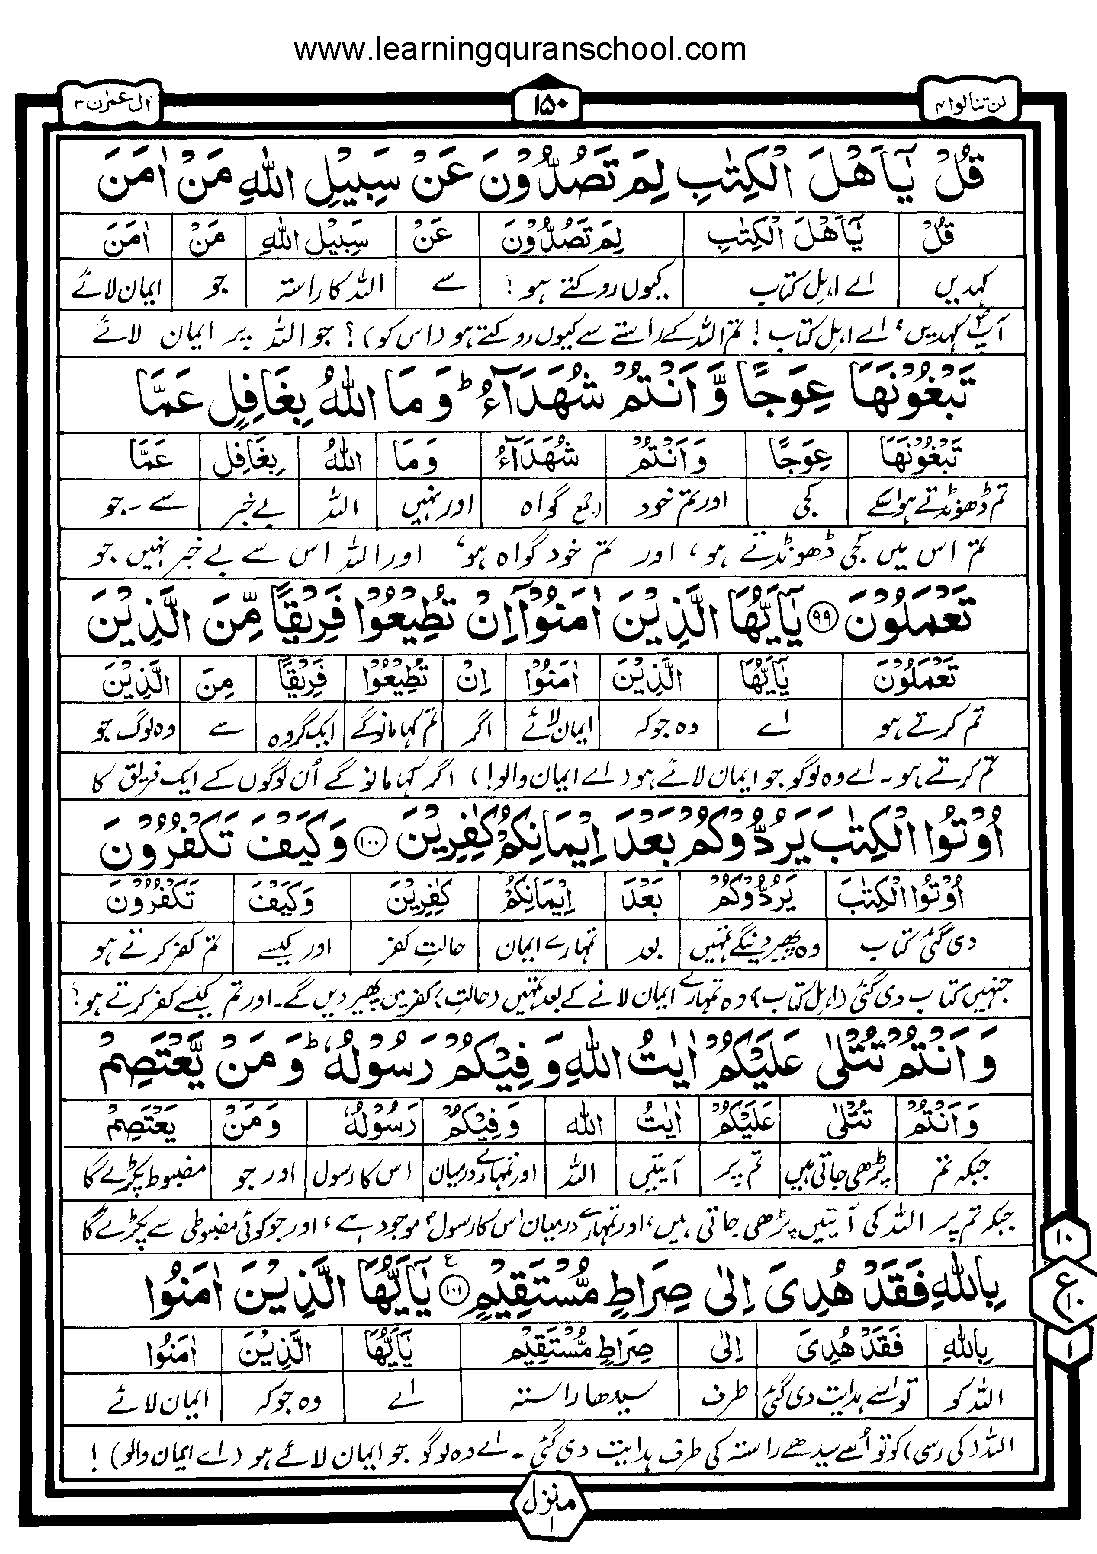 www.learningquranschool.com
اٰل عمرٰن ۳ ۱۵۰ لن تنالوا ۴
قُلْ يٰۤاَهْلَ الْكِتٰبِ لِمَ تَصُدُّوْنَ عَنْ سَبِيْلِ اللّٰهِ مَنْ اٰمَنَ
قُلْ يٰۤاَهْلَ الْكِتٰبِ لِمَ تَصُدُّوْنَ عَنْ سَبِيْلِ اللّٰهِ مَنْ اٰمَنَ
کہدیں اے اہل کتاب کیوں روکتے ہو! سے اللہ کا راستہ جو ایمان لائے
آپؐ کہدیں، اے اہل کتاب! تم اللہ کے راستے سے کیوں روکتے ہو (اس کو)؟ جو اللہ پر ایمان لائے
تَبْغُوْنَهَا عِوَجًا وَّ اَنْتُمْ شُهَدَآءُ ؕ وَ مَا اللّٰهُ بِغَافِلٍ عَمَّا
تَبْغُوْنَهَا عِوَجًا وَ اَنْتُمْ شُهَدَآءُ وَ مَا اللّٰهُ بِغَافِلٍ عَمَّا
تم ڈھونڈتے ہو اسکے کجی اور تم خود (جمع) گواہ اور نہیں اللہ بے خبر سے ۔ جو
تم اس میں کجی ڈھونڈتے ہو، اور تم خود گواہ ہو، اور اللہ اس سے بے خبر نہیں جو
تَعْمَلُوْنَ ﴿۹۹﴾ يٰۤاَيُّهَا الَّذِيْنَ اٰمَنُوْۤا اِنْ تُطِيْعُوْا فَرِيْقًا مِّنَ الَّذِيْنَ
تَعْمَلُوْنَ يٰۤاَيُّهَا الَّذِيْنَ اٰمَنُوْۤا اِنْ تُطِيْعُوْا فَرِيْقًا مِنَ الَّذِيْنَ
تم کرتے ہو اے وہ جو کہ ایمان لائے اگر تم کہا مانو گے ایک گروہ سے وہ لوگ جو
تم کرتے ہو ۔ اے وہ لوگو جو ایمان لائے ہو (اے ایمان والو!) اگر کہا مانو گے اُن لوگوں کے ایک فریق کا
اُوْتُوا الْكِتٰبَ يَرُدُّوْكُمْ بَعْدَ اِيْمَانِكُمْ كٰفِرِيْنَ ﴿۱۰۰﴾ وَ كَيْفَ تَكْفُرُوْنَ
اُوْتُوا الْكِتٰبَ يَرُدُّوْكُمْ بَعْدَ اِيْمَانِكُمْ كٰفِرِيْنَ وَ كَيْفَ تَكْفُرُوْنَ
دی گئی کتاب وہ پھیر دینگے تمہیں بعد تمہارے ایمان حالتِ کفر اور کیسے تم کفر کرتے ہو
جنہیں کتاب دی گئی (اہل کتاب) وہ تمہارے ایمان لانے کے بعد تمہیں (حالتِ) کفر میں پھیر دیں گے ۔ اور تم کیسے کفر کرتے ہو؟
وَ اَنْتُمْ تُتْلٰى عَلَيْكُمْ اٰيٰتُ اللّٰهِ وَ فِيْكُمْ رَسُوْلُهٗ ؕ وَ مَنْ يَّعْتَصِمْ
وَ اَنْتُمْ تُتْلٰى عَلَيْكُمْ اٰيٰتُ اللّٰهِ وَ فِيْكُمْ رَسُوْلُهٗ وَ مَنْ يَعْتَصِمْ
جبکہ تم پڑھی جاتی ہیں تم پر آیتیں اللہ اور تمہارے درمیان اس کا رسول اور جو مضبوط پکڑے گا
جبکہ تم پر اللہ کی آیتیں پڑھی جاتی ہیں، اور تمہارے درمیان اس کا رسولؐ موجود ہے، اور جو کوئی مضبوطی سے پکڑے گا
بِاللّٰهِ فَقَدْ هُدِيَ اِلٰى صِرَاطٍ مُّسْتَقِيْمٍ ﴿۱۰۱﴾ ع يٰۤاَيُّهَا الَّذِيْنَ اٰمَنُوا
بِاللّٰهِ فَقَدْ هُدِيَ اِلٰى صِرَاطٍ مُّسْتَقِيْمٍ يٰۤاَيُّهَا الَّذِيْنَ اٰمَنُوا
اللہ کو تو اسے ہدایت دی گئی طرف سیدھا راستہ اے وہ جو کہ ایمان لائے
اللہ (کی رسی) کو تو اُسے سیدھے راستہ کی طرف ہدایت دی گئی ۔ اے وہ لوگو جو ایمان لائے ہو (اے ایمان والو)!
۱۰
ع
۱۰
۱
منزل
۱